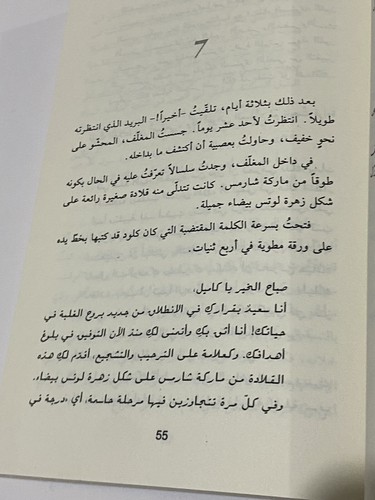 7
بعد ذلك بثلاثة أيام، تلقّيتُ -أخيراً!- البريد الذي انتظرته
طويلاً. انتظرتُ لأحد عشر يوماً. جسستُ المغلّف، المحشو على
نحوٍ خفيف، وحاولتُ بعصبية أن أكتشف ما بداخله.
في داخل المغلّف، وجدتُ سلسالاً تعرّفتُ عليه في الحال بكونه
طوقاً من ماركة شارمس. كانت تتدلّى منه قلادة صغيرة رائعة على
شكل زهرة لوتس بيضاء جميلة.
فتحتُ بسرعة الكلمة المقتضبة التي كان كلود قد كتبها بخطّ يده
على ورقة مطوية في أربع ثنيات.
صباح الخير يا كاميل،
أنا سعيدٌ بقراركِ في الانطلاق من جديد بروح الغلبة في
حياتكِ! أنا أثق بكِ وأتمنى لكِ منذ الآن التوفيق في بلوغ
أهدافكِ. وكعلامة على الترحيب والتشجيع، أقدّم لكِ هذه
القلادة من ماركة شارمس على شكل زهرة لوتس بيضاء.
وفي كلّ مرة تتجاوزين فيها مرحلة حاسمة، أي، درجة في
55